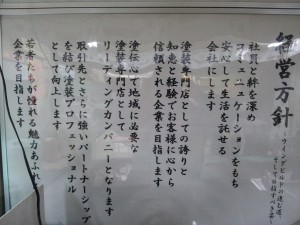 経営方針
～ウインドビルドの進む道、
そして目指すべき姿～
社員と絆を深め
コミュニケーションをもち
安心して生活を託せる
会社にします
塗装専門店としての誇りと
知恵と経験でお客様に心から
信頼される企業を目指します
塗伝心で地域に必要な
塗装専門店として
リーディングカンパニーとなります
取引先とさらに強いパートナーシップ
を結び塗装プロフェッショナル
として向上します
若者たちが憧れる魅力あふれ
企業を目指します